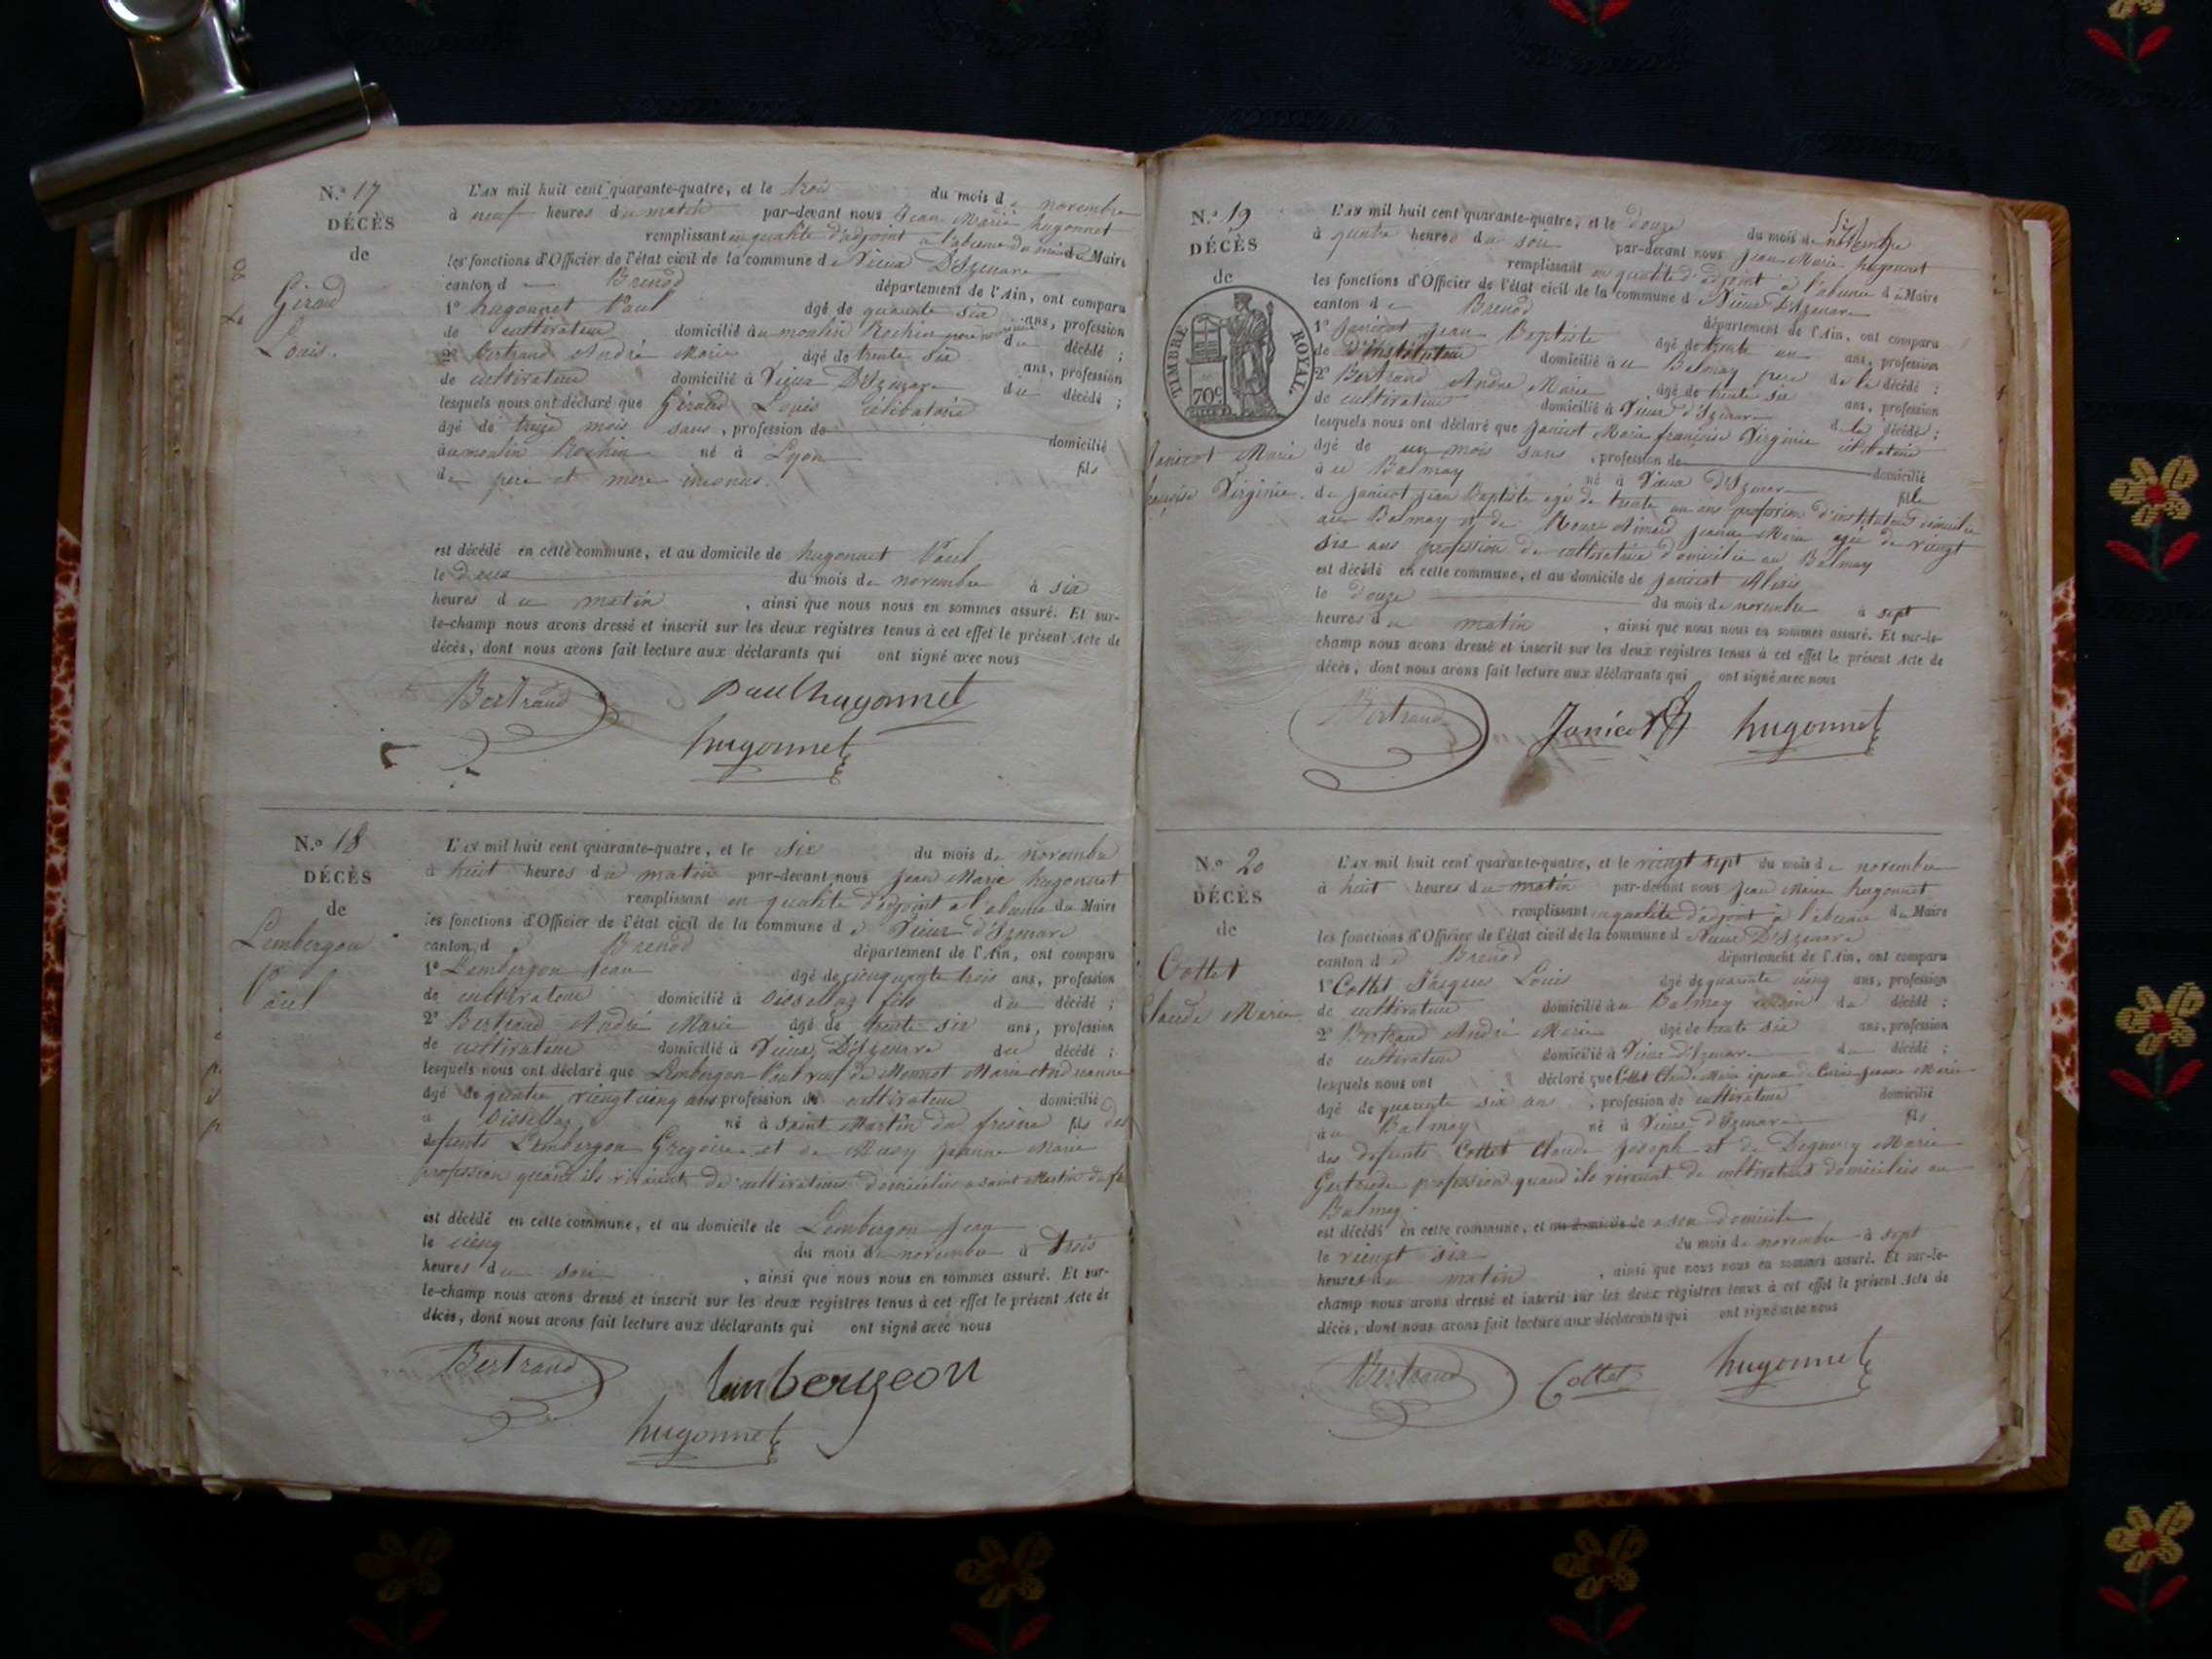 N.° 17
DÉCÈS
de
Giroud
Louis.
L'an mil huit cent quarante-quatre, et le trois du mois de novembre
à neuf heures du matin par-devant nous Jean Marie hugonnet
remplissant en qualité d'adjoint a l'absence du Maire
les fonctions d'Officier de l'état civil de la commune de Vieux D'Izenave
canton de Brenod département de l'Ain, ont comparu
1° hugonnet Paul âgé de quarante six ans, profession
de cultivateur domicilié au moulin Rochin du décédé ;
2° Bertrand André Marie âgé de trente six ans, profession
de cultivateur domicilié à Vieux D'Izenave du décédé ;
lesquels nous ont déclaré que Giroud Louis célibataire
âgé de treize mois sans, profession de domicilié
au moulin Rochin né à Lyon fils
de père et mère inconus.
est décédé en cette commune, et au domicile de hugonnet Paul
le deux du mois de novembre à six
heures du matin, ainsi que nous nous en sommes assuré. Et sur-
le-champ nous avons dressé et inscrit sur les deux registres tenus à cet effet le présent Acte de
décès, dont nous avons fait lecture aux déclarants qui ont signé avec nous
Bertrand Paul hugonnet
hugonnet
N.° 18
DÉCÈS
de
Lembergon
Paul
L'an mil huit cent quarante-quatre, et le six du mois de novembre
à huit heures du matin par-devant nous Jean Marie hugonnet
remplissant en qualité d'adjoint a l'absence du Maire
les fonctions d'Officier de l'état civil de la commune de Vieux d'Izenave
canton de Brenod département de l'Ain, ont comparu
1° Lembergon Jean âgé de cinquante trois ans, profession
de cultivateur domicilié à Oissellaz fils du décédé ;
2° Bertrand André Marie âgé de trente six ans, profession
de cultivateur domicilié à Vieux D'Izenave du décédé ;
lesquels nous ont déclaré que Lembergon Paul veuf de Monnet Marie
âgé de quatre viengt cienq ans profession de cultivateur domicilié
a Oissellaz né à Saint Martin du fresne fils des
defunts Lembergon Gregoire et de Jeanne Marie
profession quand ils vivaient de cultivateurs domiciliés a saint Martin du
est décédé en cette commune, et au domicile de Lembergon Jean
le cienq du mois de novembre à trois
heures du soir, ainsi que nous nous en sommes assuré. Et sur-
le-champ nous avons dressé et inscrit sur les deux registres tenus à cet effet le présent Acte de
décès, dont nous avons fait lecture aux déclarants qui ont signé avec nous
Bertrand lambergeon
hugonnet
N.° 19
DÉCÈS
de
TIMBRE ROYAL.
70c
Janicot Marie
françoise Virginie.
L'an mil huit cent quarante-quatre, et le douze du mois de novembre
à quatre heures du soir par-devant nous Jean Marie hugonnet
remplissant en qualité d'adjoint à l'absence du Maire
les fonctions d'Officier de l'état civil de la commune de Vieux D'Izenave
canton de Brenod département de l'Ain, ont comparu
1° Janicot Jean Baptiste âgé de trente un ans, profession
de d'Instituteur domicilié au Balmay père de la décédé ;
2° Bertrand André Marie âgé de trente six ans, profession
de cultivateur domicilié à Vieux d'Izenave de la décédé ;
lesquels nous ont déclaré que Janicot Marie françoise Virginie célibataire
âgé de un mois sans, profession de domicilié
à au Balmay né à Vieux D'Izenave fille
de Janicot Jean Baptiste agé de trente un ans profession d'instituteur domicilié
au Balmay et de Aimard Jeanne Marie agée de viengt
six ans profession de cultivatrice domiciliée au Balmay
est décédé en cette commune, et au domicile de Janicot Alexis
le douze du mois de novembre à sept
heures du matin, ainsi que nous nous en sommes assuré. Et sur-le-
champ nous avons dressé et inscrit sur les deux registres tenus à cet effet le présent Acte de
décès, dont nous avons fait lecture aux déclarants qui ont signé avec nous
Bertrand Janicot hugonnet
N.° 20
DÉCÈS
de
Cottet
Claude Marie
L'an mil huit cent quarante-quatre, et le viengt sept du mois de novembre
à huit heures du matin par-devant nous Jean Marie hugonnet
remplissant en qualité d'adjoint à l'absence du Maire
les fonctions d'Officier de l'état civil de la commune de Vieux D'Izenave
canton de Brenod département de l'Ain, ont comparu
1° Cottet Jacques Louis âgé de quarante cienq ans, profession
de cultivateur domicilié au Balmay cousin du décédé ;
2° Bertrand André Marie âgé de trente six ans, profession
de cultivateur domicilié à Vieux d'Izenave du décédé ;
lesquels nous ont déclaré que Cottet Claude Marie époux de Jeanne Marie
âgé de quarante six ans, profession de cultivateur domicilié
au Balmay né à Vieux d'Izenave fils
des defunts Cottet Claude Joseph et de Marie
Gertrude profession quand ils vivaient de cultivateurs domiciliés au
Balmay.
est décédé en cette commune, et au domicile de a son domicile
le viengt six du mois de novembre à sept
heures du matin, ainsi que nous nous en sommes assuré. Et sur-le-
champ nous avons dressé et inscrit sur les deux registres tenus à cet effet le présent Acte de
décès, dont nous avons fait lecture aux déclarants qui ont signé avec nous
Bertrand Cottet hugonnet